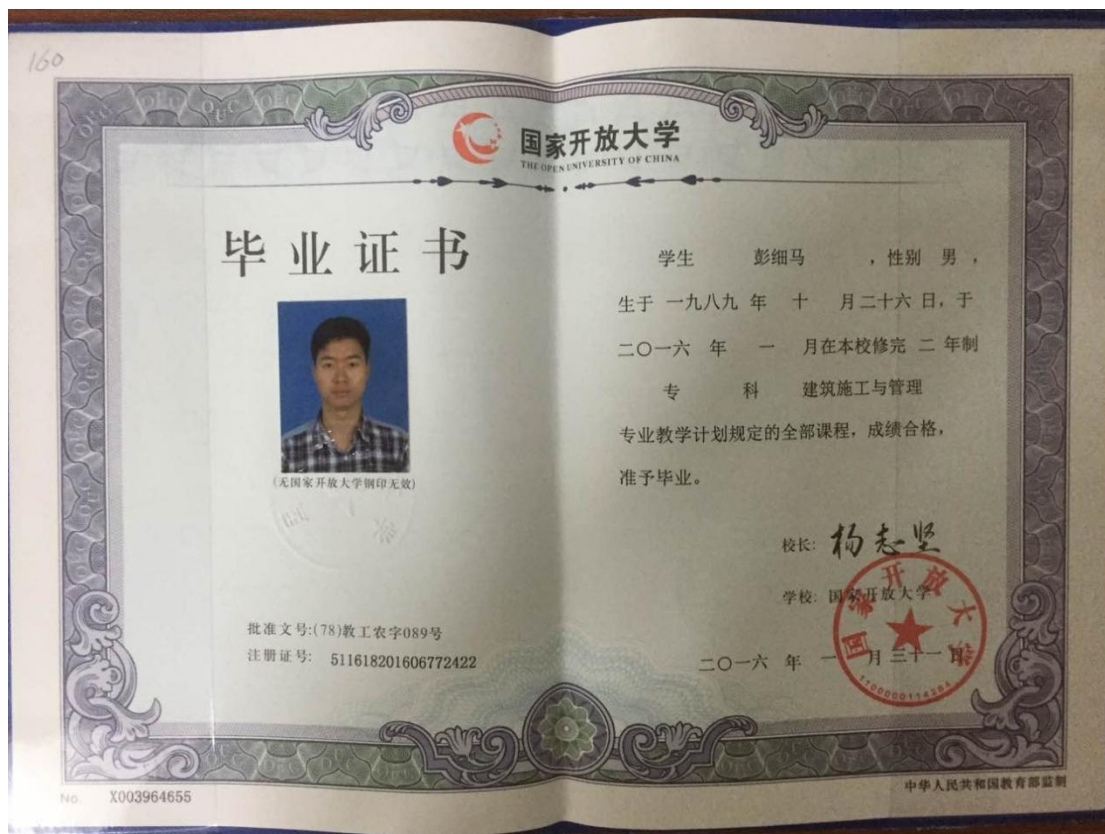 160
国家开放大学
THE OPEN UNIVERSITY OF CHINA
毕业证书
(无国家开放大学钢印无效)
批准文号:(78)教工农字089号
注册证号: 511618201606772422
学生 彭细马 ,性别 男 ,
生于 一九八九 年 十 月二十六 日,于
二〇一六 年 一 月在本校修完 二 年制
专 科 建筑施工与管理
专业教学计划规定的全部课程,成绩合格,
准予毕业。
校长: 杨志坚
学校: 国家开放大学
二〇一六 年 一 月三十一日
国家开放大学
1100000114284
No. X003964655
中华人民共和国教育部监制